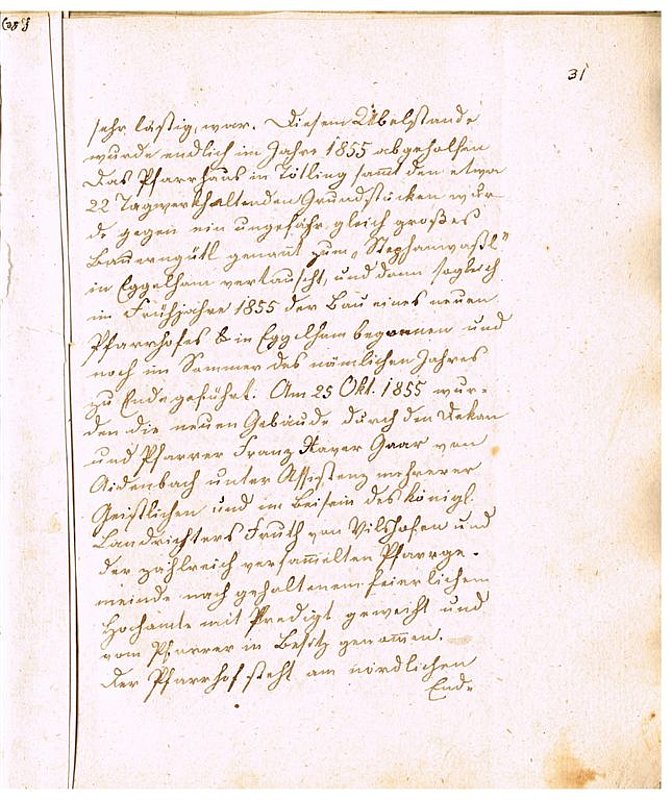 31
sehr lästig, war. Diesem Übelstande
wurde endlich im Jahre 1855 abgeholfen
Das Pfarrhaus in Tötling sam̅t den etwa
22 Tagwerk haltenden Grundstücken wur-
de gegen ein ungefähr gleich großes
Bauerngütl genan̅t zum „Stephanwastl"
in Eggelham vertauscht, und dann sogleich
im Frühjahre 1855 der Bau eines neuen
Pfarrhofes in Eggelham begonnen und
noch im Sommer des nämlichen Jahres
zu Ende geführt. Am 25 Okt. 1855 wur-
den die neuen Gebäude durch den Dekan
und Pfarrer Franz Xaver Gaar von
Aidenbach unter Assistenz mehrerer
Geistlichen und im Beisein des königl.
Landrichters Fruth von Vilshofen und
der zahlreich versam̅elten Pfarrge-
meinde nach gehaltenem feierlichem
Hochamte mit Predigt geweiht und
vom Pfarrer in Besitz genom̅en.
Der Pfarrhof steht am nördlichen
Ende